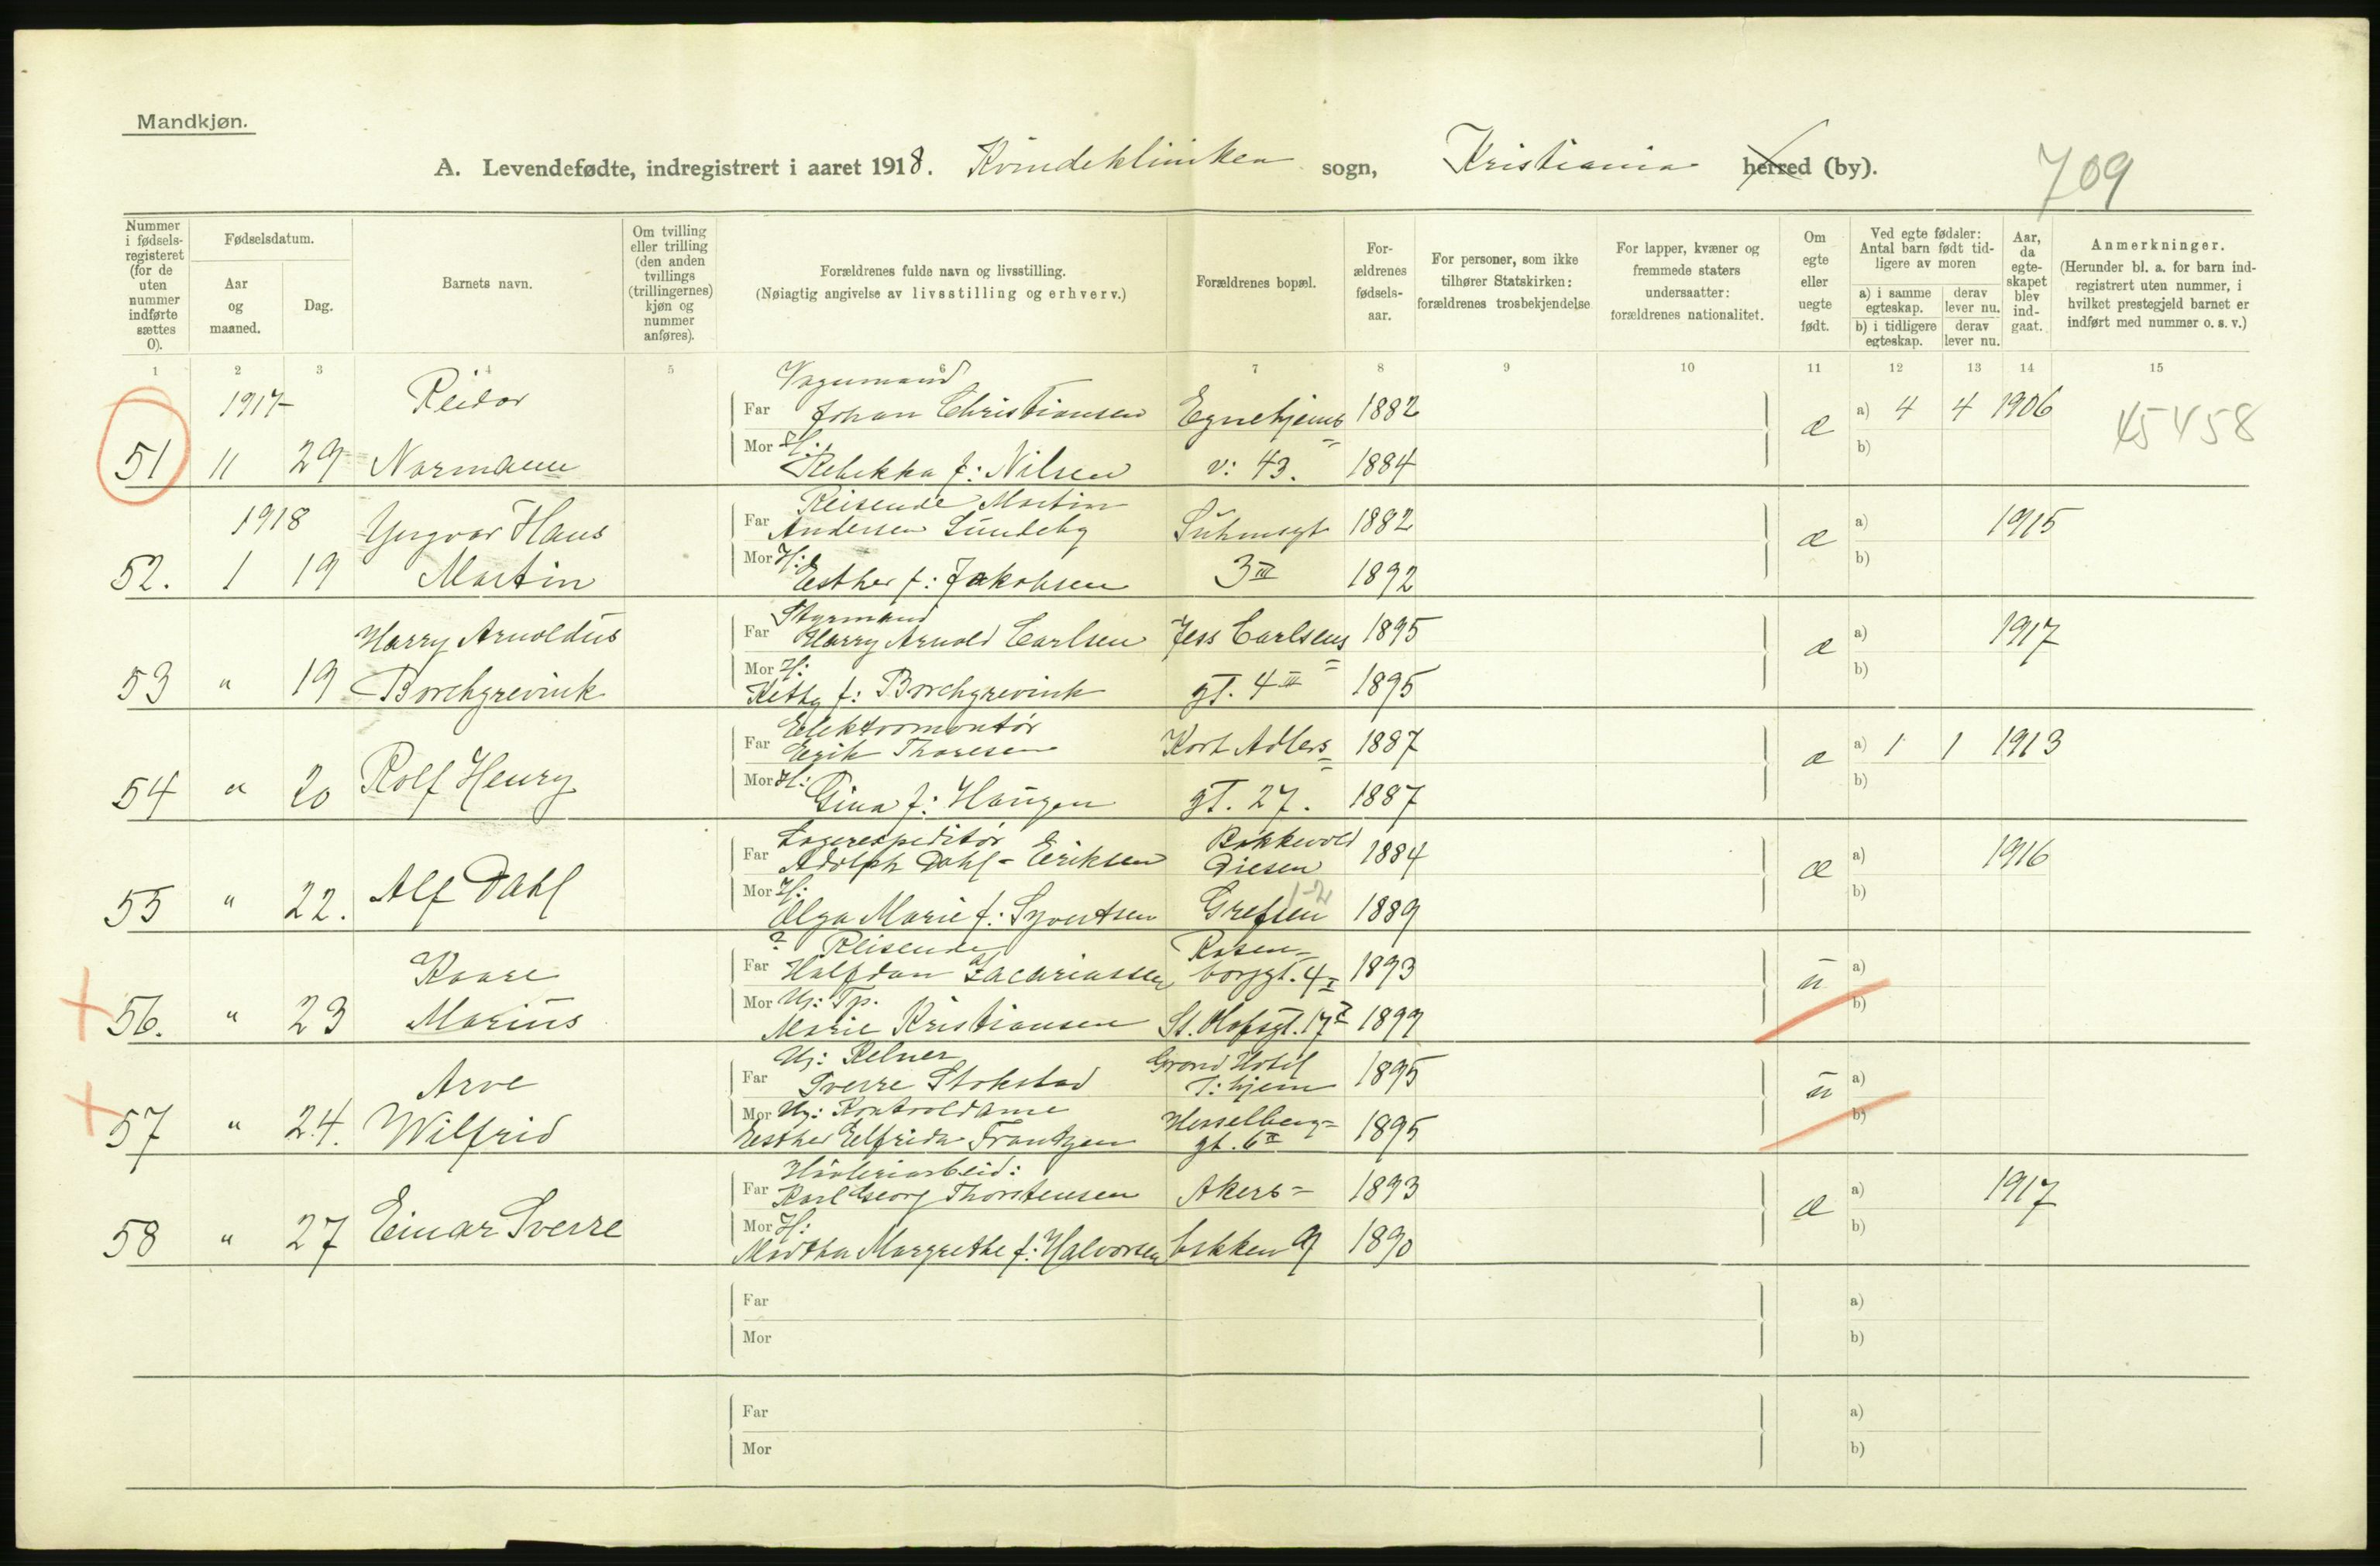 Mandkjøn.
A. Levendefødte, indregistrert i aaret 1918. Kvindeklinikken sogn, Kristiania herred (by).
709
Nummer i fødsels-registeret (for de uten nummer indførte sættes 0).
Fødselsdatum.
Aar og maaned.
Dag.
Barnets navn.
Om tvilling eller trilling (den anden tvillings (trillingernes) kjøn og nummer anføres).
Forældrenes fulde navn og livsstilling.
(Nøiagtig angivelse av livsstilling og erhverv.)
Forældrenes bopæl.
For-ældrenes fødsels-aar.
For personer, som ikke tilhører Statskirken: forældrenes trosbekjendelse
For lapper, kvæner og fremmede staters undersaatter: forældrenes nationalitet.
Om egte eller uegte født.
Ved egte fødsler: Antal barn født tid-ligere av moren
a) i samme egteskap. derav lever nu.
b) i tidligere egteskap. derav lever nu.
Aar, da egte-skapet blev ind-gaat.
Anmerkninger.
(Herunder bl. a. for barn ind-registrert uten nummer, i hvilket prestegjeld barnet er indført med nummer o. s. v.)
1 2 3 4 5 6 7 8 9 10 11 12 13 14 15
1917 Reidar Vognmand
Far Johan Christiansen Egnehjems 1882 æ a) 4 4 1906
51 11 29 Normann Mor H: Rebekka f: Nilsen v: 43. 1884 b)
45458
1918 Yngvar Hans Reisende Martin
Far Andersen Sundeby Suhmsgt 1882 æ a) 1915
52. 1 19 Martin Mor H: Esther f: Jakobsen 3 III 1892 b)
Harry Arnoldus Styrmand
Far Harry Arnold Carlsen Jess Carlsens 1895 æ a) 1917
53 " 19 Borchgrevink Mor H: Kitty f: Borchgrevink gt. 4 III 1895 b)
Elektromontør
Far Erik Thoresen Kort Adlers 1887 æ a) 1 1 1913
54 " 20 Rolf Henry Mor H: Gina f: Haugen gt. 27. 1887 b)
Lagerexpeditør Bakkevold
Far Adolph Dahl-Eriksen Diesen 1884 æ a) 1916
55 " 22. Alf Dahl Mor H: Olga Marie f: Syvertsen Grefsen 1889 b)
1-2
Kaare ? Reisende Rosen-
Far Halfdan Zacariassen borggt. 4 I 1893 u a)
56. " 23 Marius Mor Uj: Tp. Marie Kristiansen St. Olafsgt. 17 I 1899 b)
Arve Uj: Kelner Grand Hotel
Far Sverre Stokstad T: hjem 1895 u a)
57 " 24. Wilfrid Mor Uj: Kontroldame Hesselberg-
Esther Elfrida Frantzen gt. 6 II 1895 b)
Far Karl Georg Thorstensen Akers- 1893 æ a) 1917
58 " 27 Einar Sverre Mor H: Martha Margrethe f: Halvorsen bakken 9 1890 b)
Far a)
Mor b)
Far a)
Mor b)